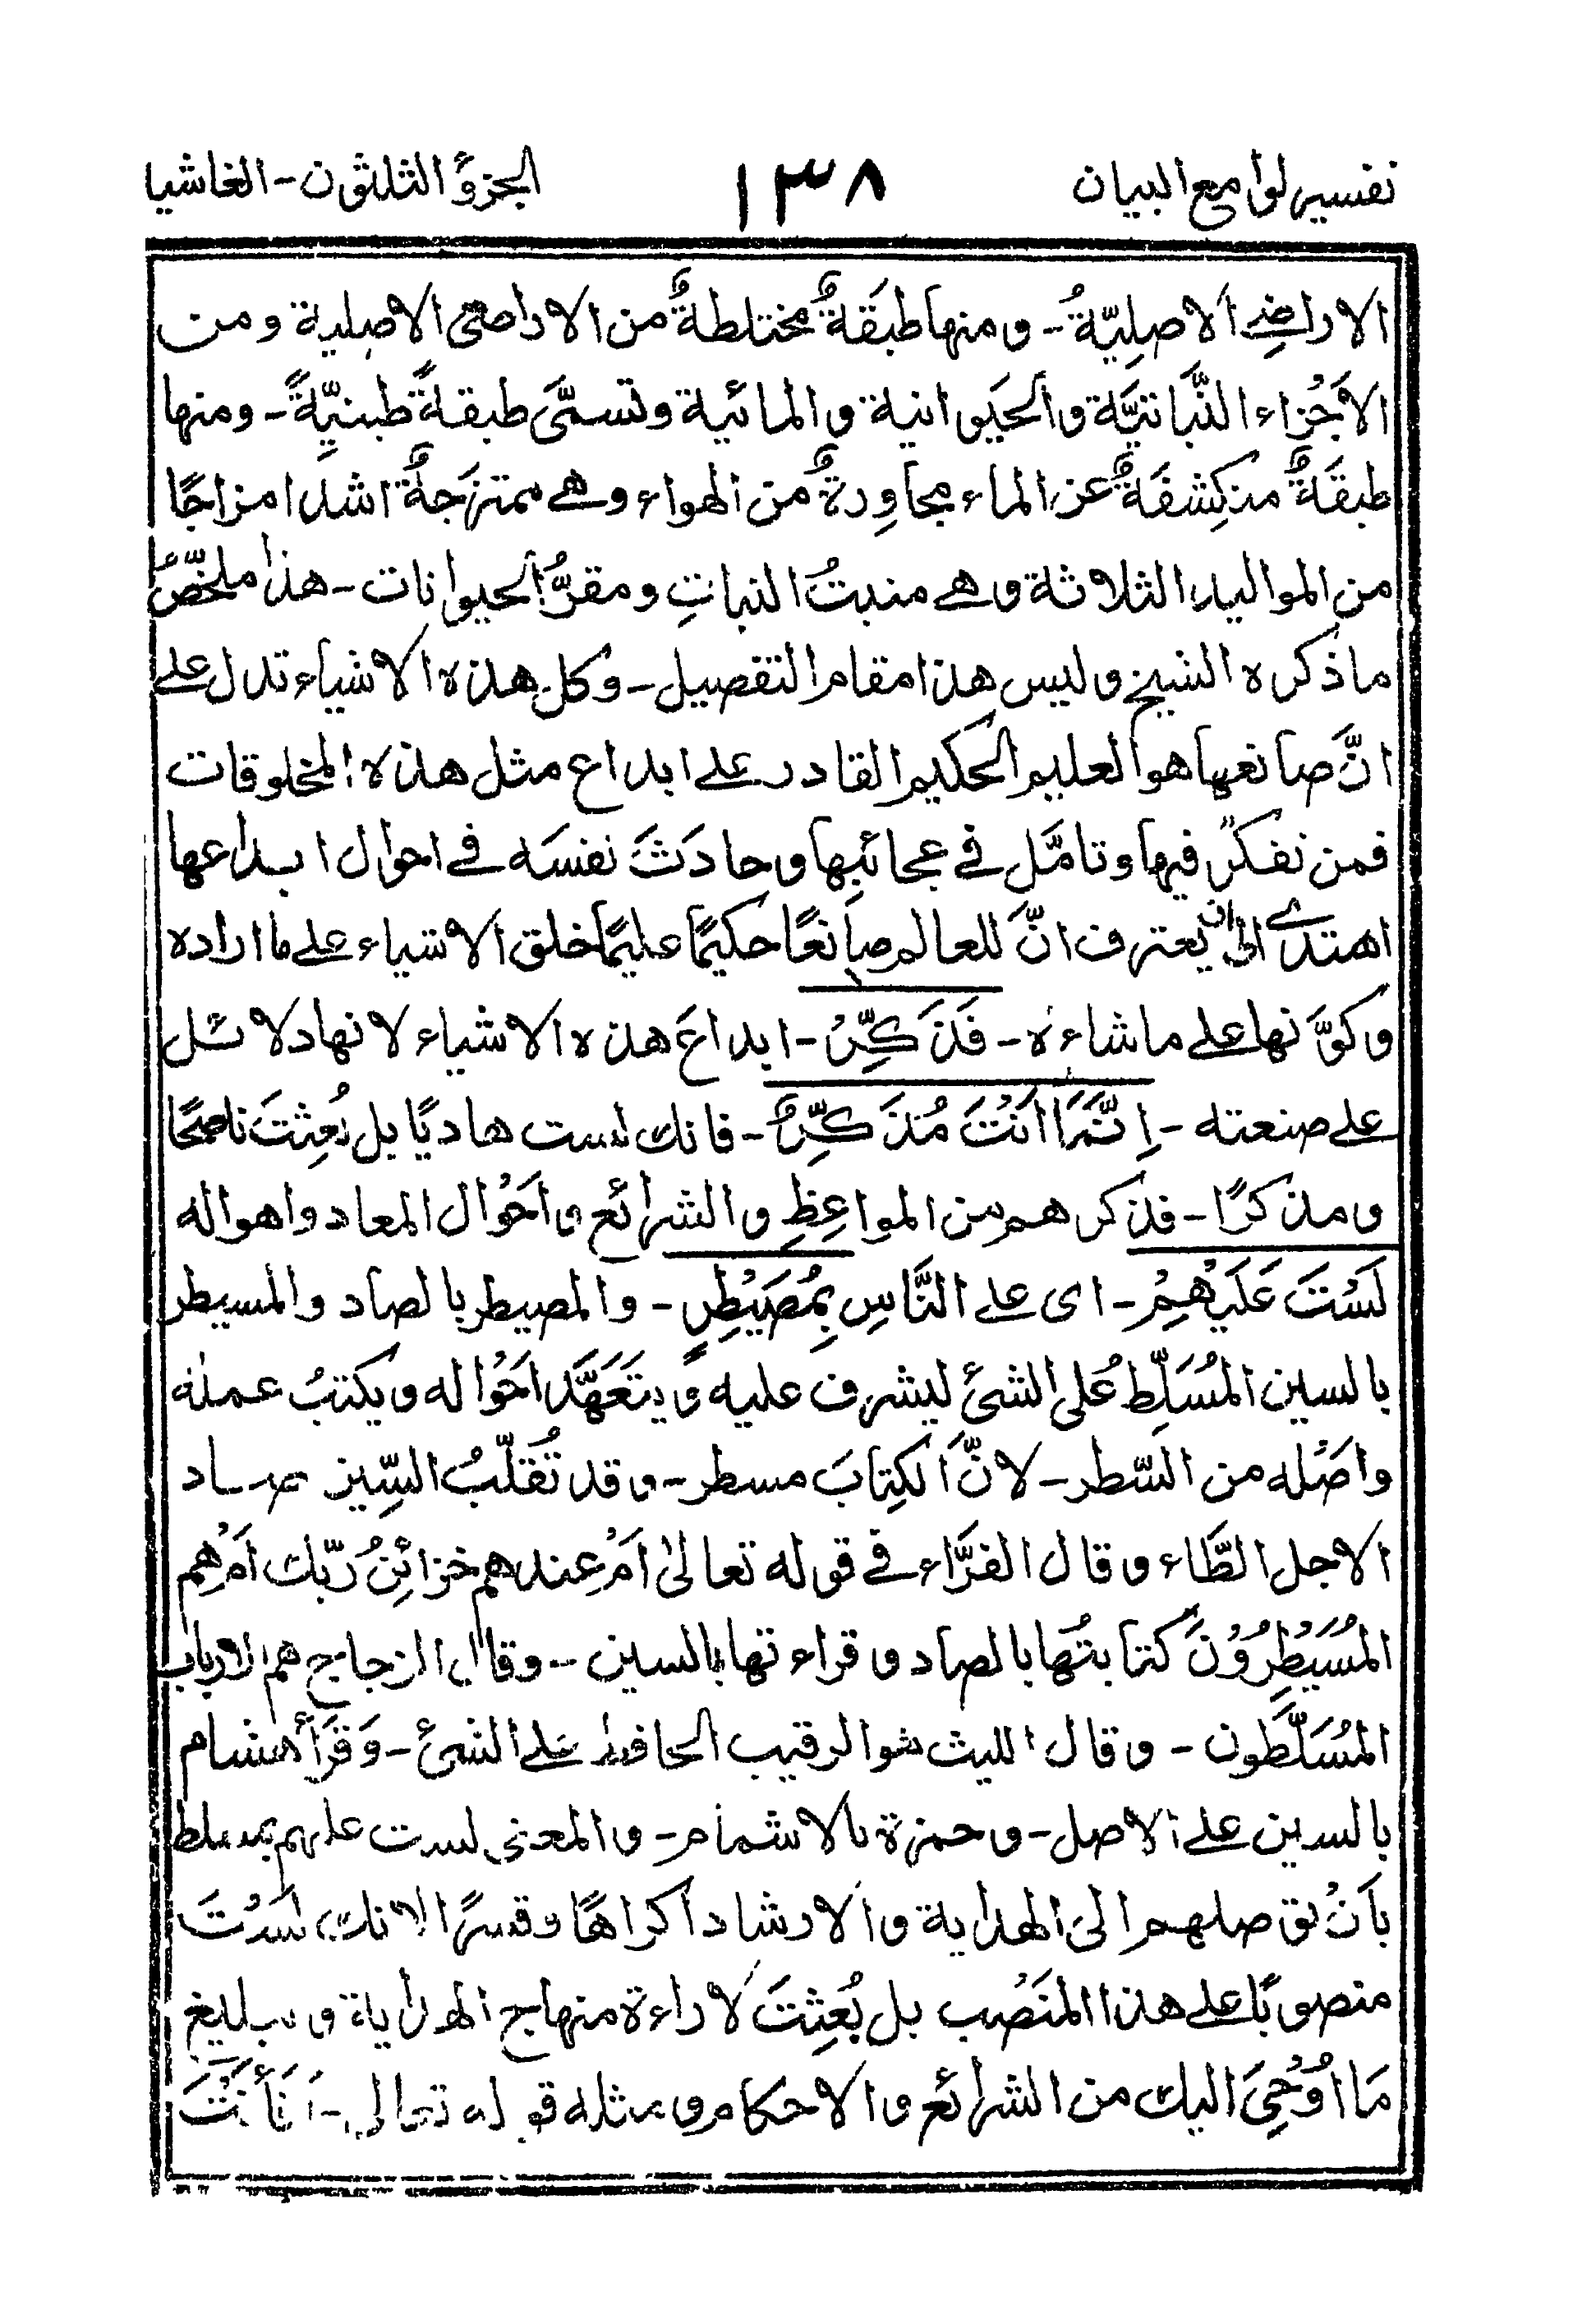 تفسير لوامع البيان ١٣٨ الجزؤ الثلثون - الغاشيا
الاراضِے الاصلِيّةُ - و منها طبقَةٌ مختلطةٌ من الاراضى الاصلية و من
الاَجْزاء النَّباتيَّة والحيَوانية والمائية وتسمّىٰ طبقةً طينيّةً - ومنها
طبقَةٌ منكِشفَةٌ عن الماء مجاوِرةٌ من الهواء وهے ممتزَجةٌ اشد امزاجًا
من المواليد الثلاثة وهے منبتُ النباتِ ومقرُّ الحيوانات - هذا ملخّصُ
ماذكره الشيخ وليس هذا مقام التفصيل - وكل هذه الاشياء تدل علے
انَّ صانعها هو العليم الحكيم القادر علے ابداع مثل هذه المخلوقات
فمن تفكرّ فيها وتامَّل فے عجائبها و حادَثَ نفسَه فے احوال ابداعها
اهتدے الى ان يعترف انَّ للعالم صانعًا حكيمًا عليمًا خلق الاشياء علے ما اراده
وكوَّنها علے ماشاءه - فَذَكِّرْ - ابداعَ هذه الاشياء لانها دلائل
علے صنعته - اِنَّمَا اَنْتَ مُذَكِّرٌ - فانك لست هاديًا بل بُعِثتَ ناصحًا
و مذكرًا - فذكرهم من المواعِظِ والشرائع واَحْوال المعاد واهواله
لَسْتَ عَلَيْهِمْ - اى علے النَّاسِ بِمُصَيْطِرٍ - والمصيطر بالصاد والمسيطر
بالسين المُسَلِّطُ علی الشئ ليشرف عليه ويتَعَهَّد اَحْواله ويكتبُ عمله
واصْله من السّطر - لانّ الكِتابَ مسطر - وقد تُقلّبُ السِّين صاد
الاجل الطَّاء وقال الفرَّاء فے قوله تعالىٰ اَمْ عِندهم خزائِنُ رَبّك اَمْ هُم
المُسَيْطِرُوْنَ كتابتُها بالصاد و قراءتها بالسين - وقال الزجاج هم الارباب
المُسَلَّطون - وقال الليث هو الرقيب الحافظ علے الشئ - وَقرَأ هشام
بالسين علے الاصل - وحمزة بالاشمام - والمعنى لست عليهم بمسلط
باَنْ توصلهم الى الهداية والارشاد اكراهًا وقسرًا لانك لسْتَ
منصوبًا علے هذا المنَصْب بل بُعِثتَ لاراءة منهاج الهداية و تبليغ
مَا اُوْحِىَ اليك من الشرائع والاحكام ومثله قوله تعالى - اَفَاَنْتَ